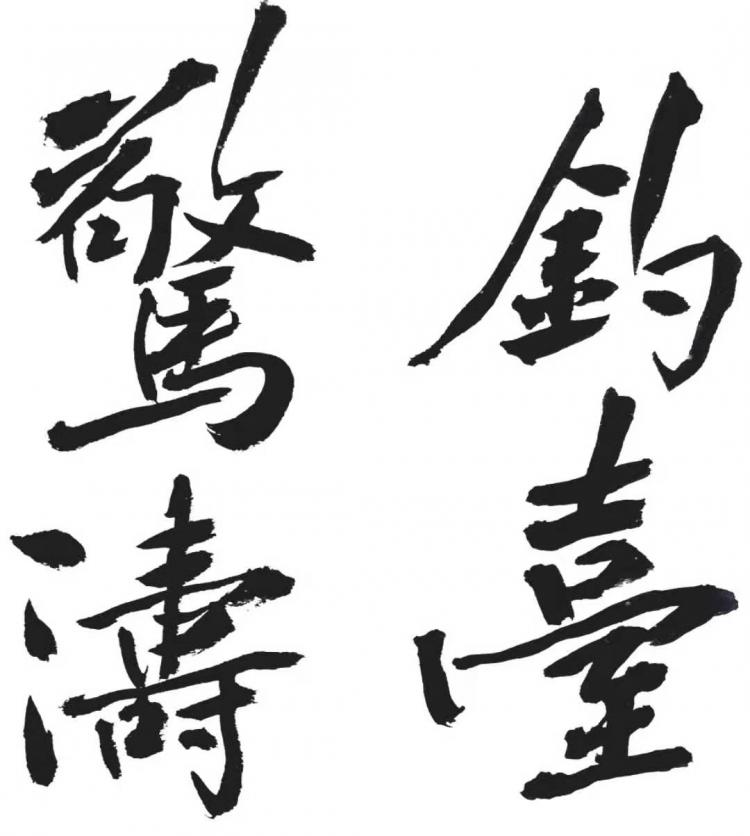 釣臺
驚濤